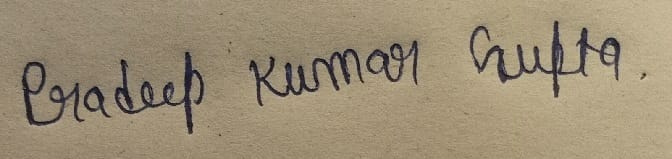 Pradeep Kumar Gupta.